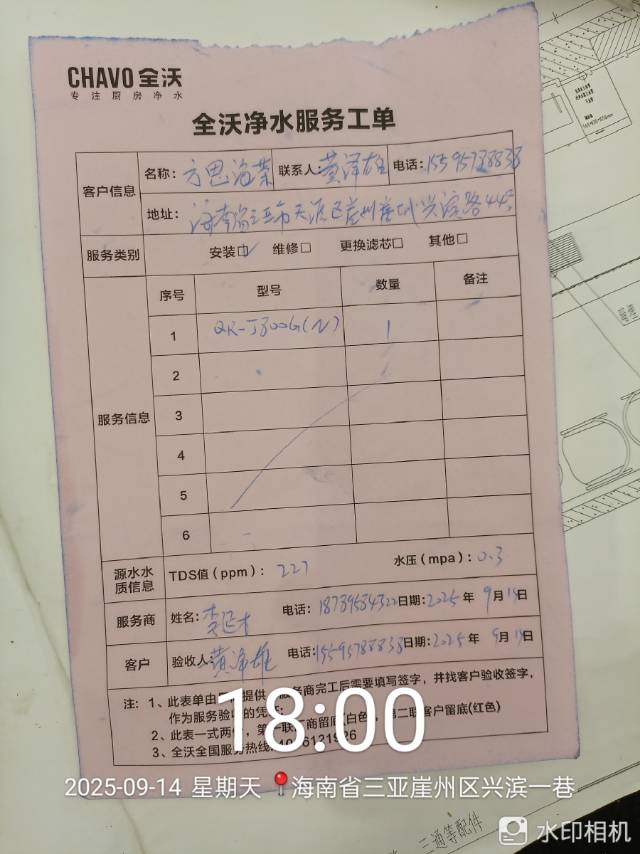 CHAVO 全沃
专注厨房净水
全沃净水服务工单
客户信息
名称：方思海棠 联系人：黄泽雄 电话：15595788838
地址：海南省三亚市天涯区崖州崖城兴滨路44号
服务类别 安装☑ 维修□ 更换滤芯□ 其他□
服务信息
序号 型号 数量 备注
1 QR-J300G(N) 1
2
3
4
5
6
源水水质信息 TDS值（ppm）：227 水压（mpa）：0.3
服务商 姓名： 电话：18739584322 日期：2025年9月14日
客户 验收人：黄泽雄 电话：15595788838 日期：2025年9月14日
注：1、此表单由 提供 服务商完工后需要填写签字，并找客户验收签字，
作为服务验收的凭
2、此表一式两份，第一联 商留底(白色)，第二联客户留底(红色)
3、全沃全国服务热线
18:00
2025-09-14 星期天 海南省三亚崖州区兴滨一巷
三通等配件
水印相机